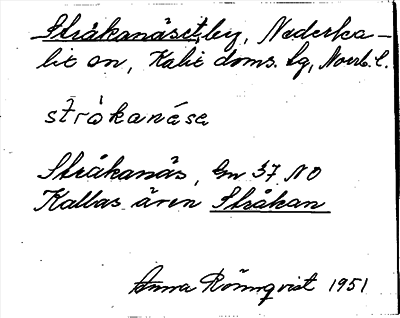 Stråkanäset, by, Nederka-
lix sn, Kalix doms. lg, Norrb. l.
stråkanäse
Stråkanäs, Gn 37 NO
Kallas även Stråkan
Anna Rönnqvist 1951